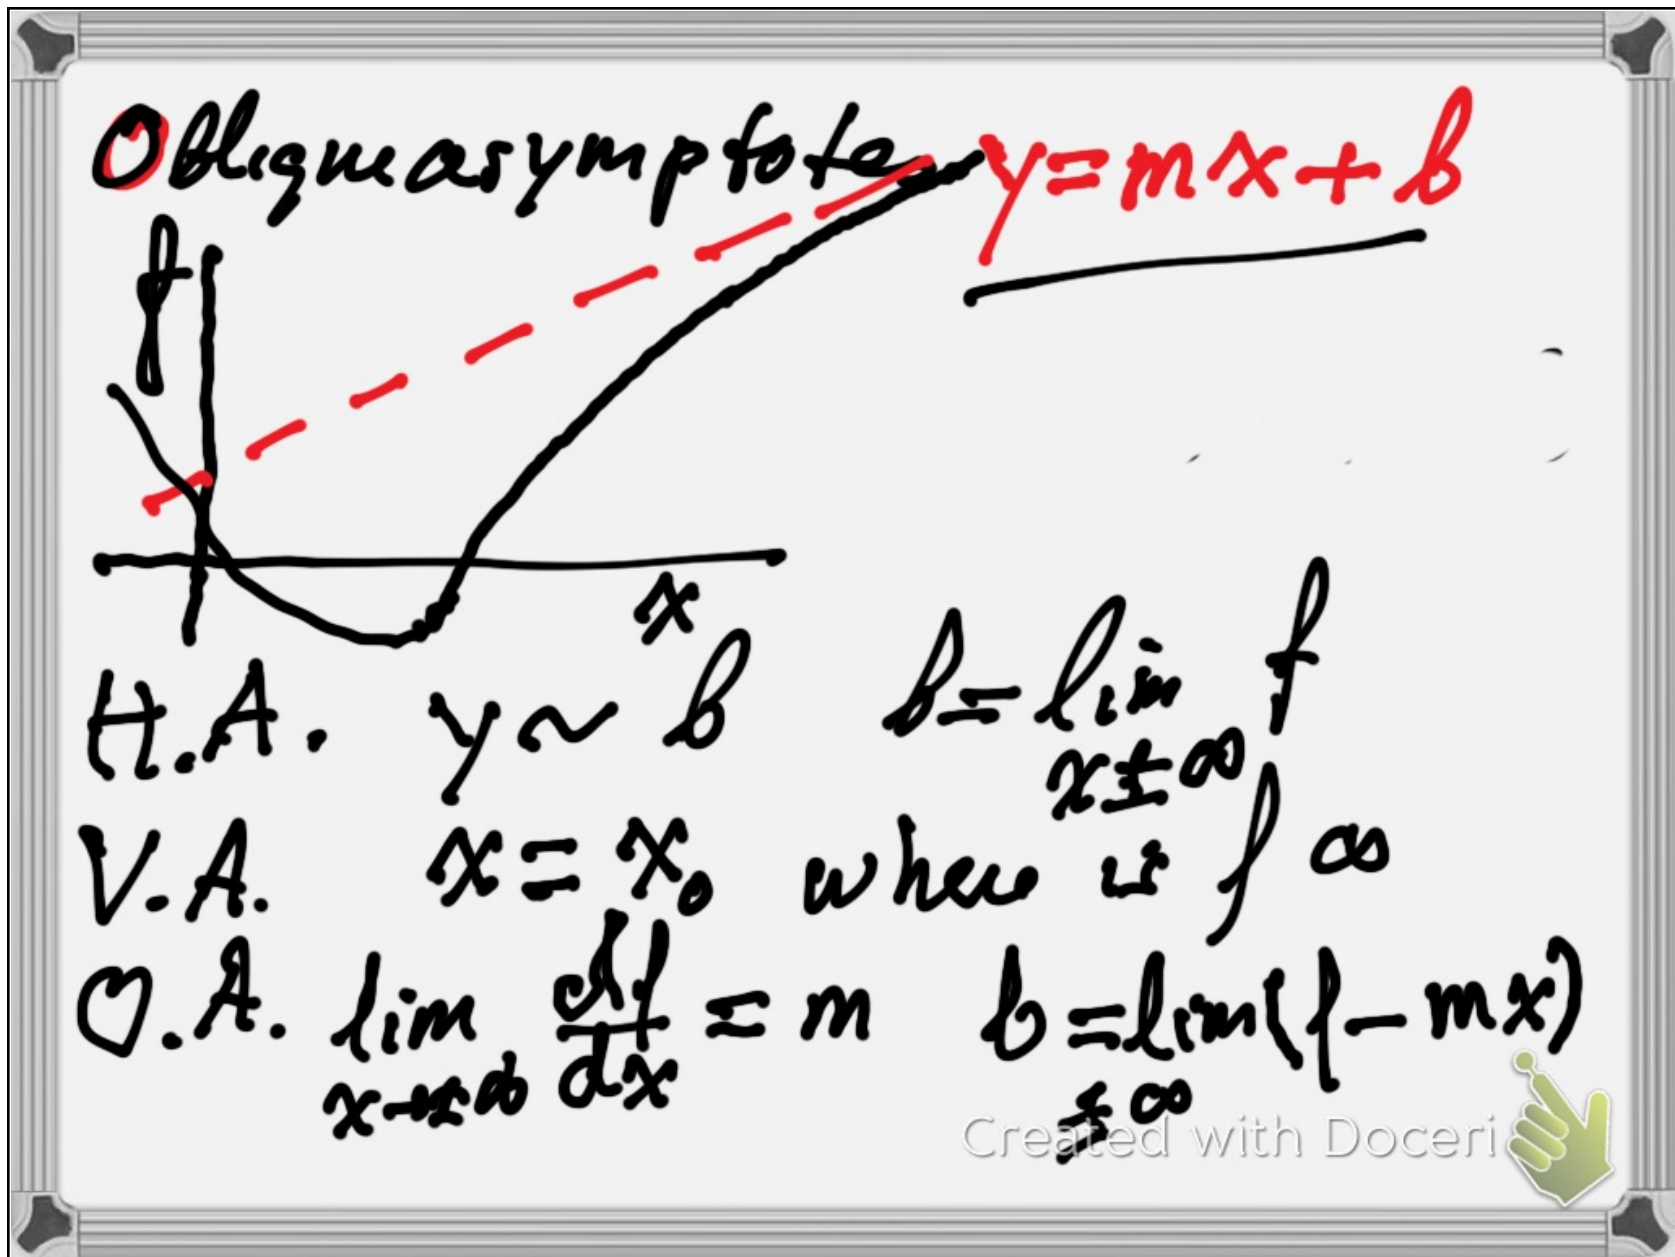 Oblique asymptote y=mx+b
f
x
H.A. y ~ b b = lim f
x ± ∞
V.A. x = x₀ where is f ∞
O.A. lim df/dx = m b = lim (f - mx)
x→±∞ ±∞
Created with Doceri